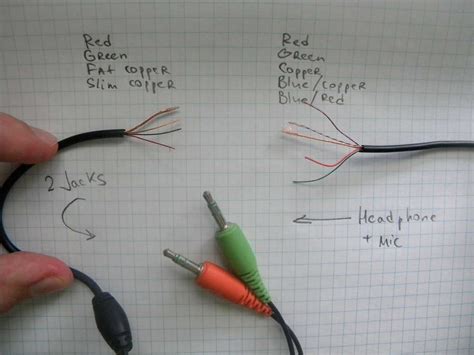 Red
Green
FAt copper
Slim copper
Red
Green
Copper
Blue/Copper
Blue/Red
2 Jacks
Headphone
+ Mic